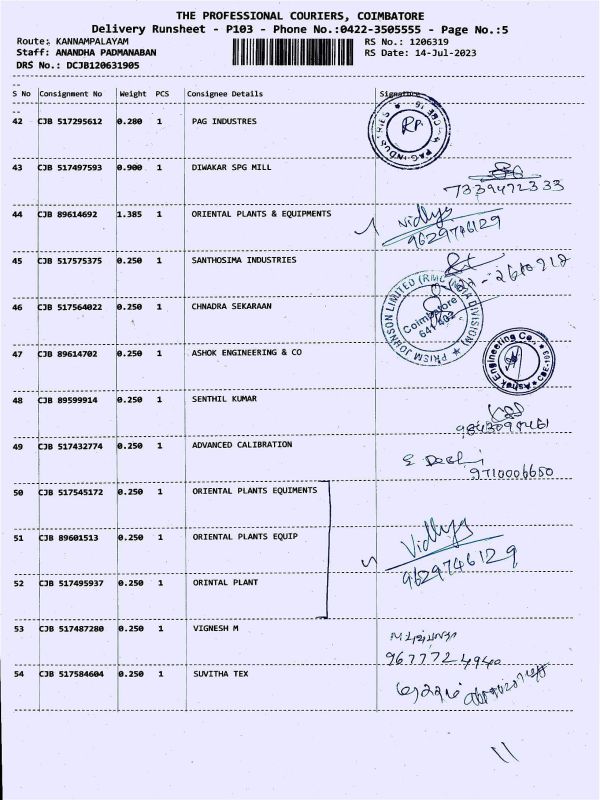 THE PROFESSIONAL COURIERS, COIMBATORE
Delivery Runsheet - P103 - Phone No.:0422-3505555 - Page No.:5
Route: KANNAMPALAYAM RS No.: 1206319
Staff: ANANDHA PADMANABAN RS Date: 14-Jul-2023
DRS No.: DCJB120631905
S No Consignment No Weight PCS Consignee Details Signature
42 CJB 517295612 0.280 1 PAG INDUSTRES
PAG INDUSTRIES
43 CJB 517497593 0.900 1 DIWAKAR SPG MILL
7339472333
44 CJB 89614692 1.385 1 ORIENTAL PLANTS & EQUIPMENTS Vidhya
9629746129
45 CJB 517575375 0.250 1 SANTHOSIMA INDUSTRIES
46 CJB 517564022 0.250 1 CHNADRA SEKARAAN
PRISM JOHNSON LIMITED (RMC INDIA DIVISION)
Coimbatore
641 402
47 CJB 89614702 0.250 1 ASHOK ENGINEERING & CO
Ashok Engineering Co.,
48 CJB 89599914 0.250 1 SENTHIL KUMAR
49 CJB 517432774 0.250 1 ADVANCED CALIBRATION
9710006650
50 CJB 517545172 0.250 1 ORIENTAL PLANTS EQUIMENTS
51 CJB 89601513 0.250 1 ORIENTAL PLANTS EQUIP Vidhya
52 CJB 517495937 0.250 1 ORINTAL PLANT 9629746129
53 CJB 517487280 0.250 1 VIGNESH M
9677724940
54 CJB 517584604 0.250 1 SUVITHA TEX